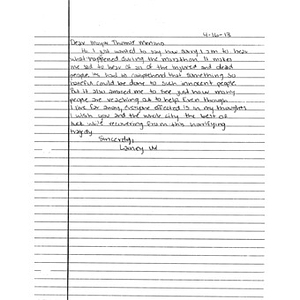 4-16-13
Dear Mayor Thomas Menino
Hi I just wanted to say how sorry I am to hear
what happened during the marathon. It makes
me sad to hear of all of the injured and dead
people. Its hard to comprehend that something so
harmful could be done to such innocent people.
But it also amazed me to see just how many
people are reaching out to help. Even though
I live far away, everyone affected is in my thoughts
I wish you and the whole city the best of
luck while recovering from this horrifying
tragedy
Sincerely,
Lainey W